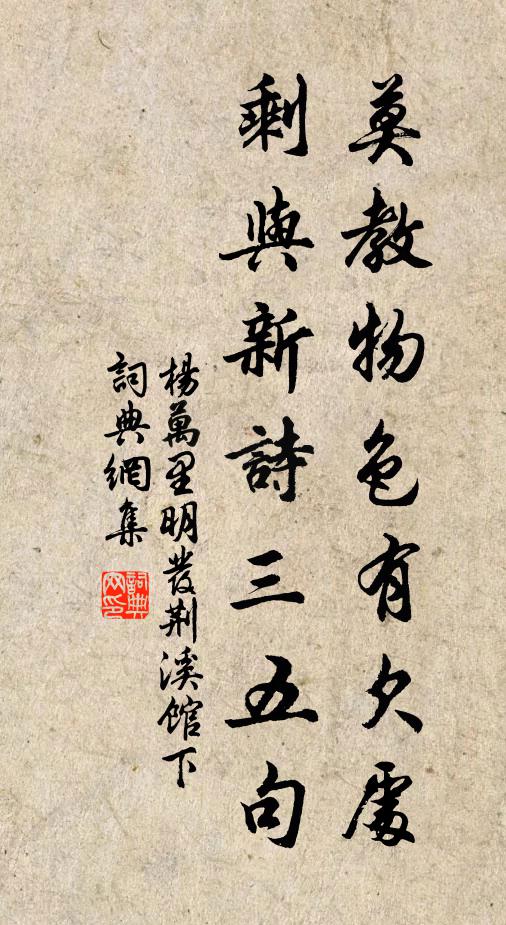 莫教物色有欠處
剩與新詩三五句
楊萬里明發荆溪館下
詞典網集
詞典
网印